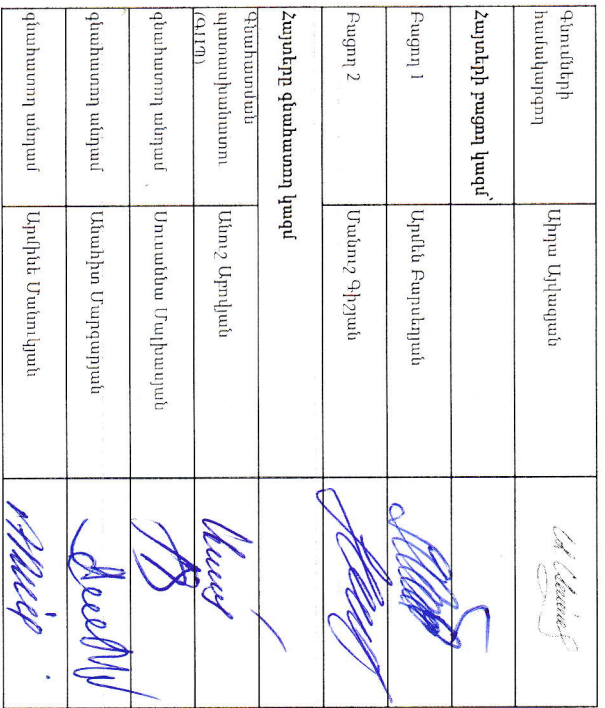 Գնումների
համակարգող
Աիդա Այվազյան
Հայտերի բացող կազմ՝
Բացող 1
Արմեն Բարսեղյան
Բացող 2
Մանուշ Գիշյան
Հայտերը գնահատող կազմ
Գնահատման
պատասխանատու
(ԳՊՊ)
Անուշ Արովյան
գնահատող անդամ
Սուսաննա Մալխասյան
գնահատող անդամ
Անահիտ Մարգարյան
գնահատող անդամ
Արմինե Մանուկյան